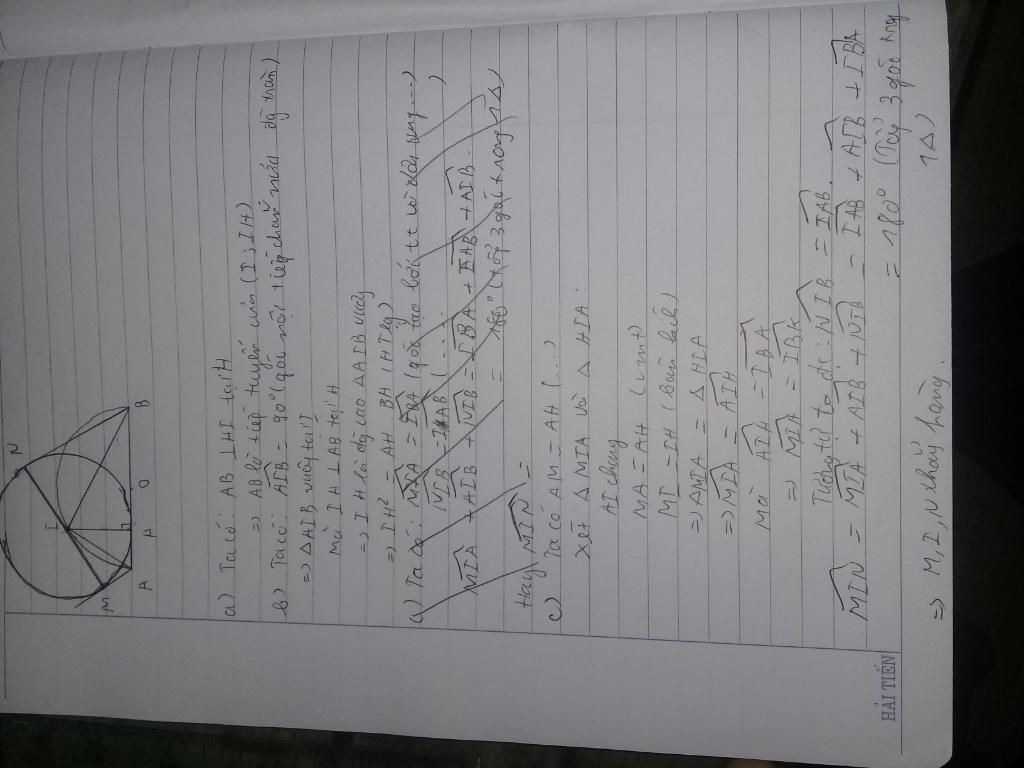 M
N
I
A
H
O
B
a) Ta có: AB ⊥ HI tại H
⇒ AB là tiếp tuyến của (I; IH)
b) Ta có: AIB = 90° (góc nội tiếp chắn nửa đg tròn)
⇒ ΔAIB vuông tại I
Mà IH ⊥ AB tại H
⇒ IH là đg cao ΔAIB vuông
⇒ IH² = AH . BH (HTLg)
c) Ta có: MIA = IBH (góc tạo bởi tt và dây cung...)
NIB = IAB (....)
MIA + AIB + NIB = IBA + IAB + AIB
= 180° (tổng 3 góc trong 1Δ)
Hay MIN =
c) Ta có AM = AH (...)
Xét Δ MIA và Δ HIA:
AI chung
MA = AH (cmt)
MI = IH (bán kính)
⇒ ΔMIA = Δ HIA
⇒ MIA = AIH
Mà AIH = IBA
⇒ MIA = IBA
Tương tự ta đc: NIB = IAB.
MIN = MIA + AIB + NIB = IAB + AIB + IBA
= 180° (Tổng 3 góc trong
1Δ)
⇒ M, I, N thẳng hàng.
HẢI TIẾN